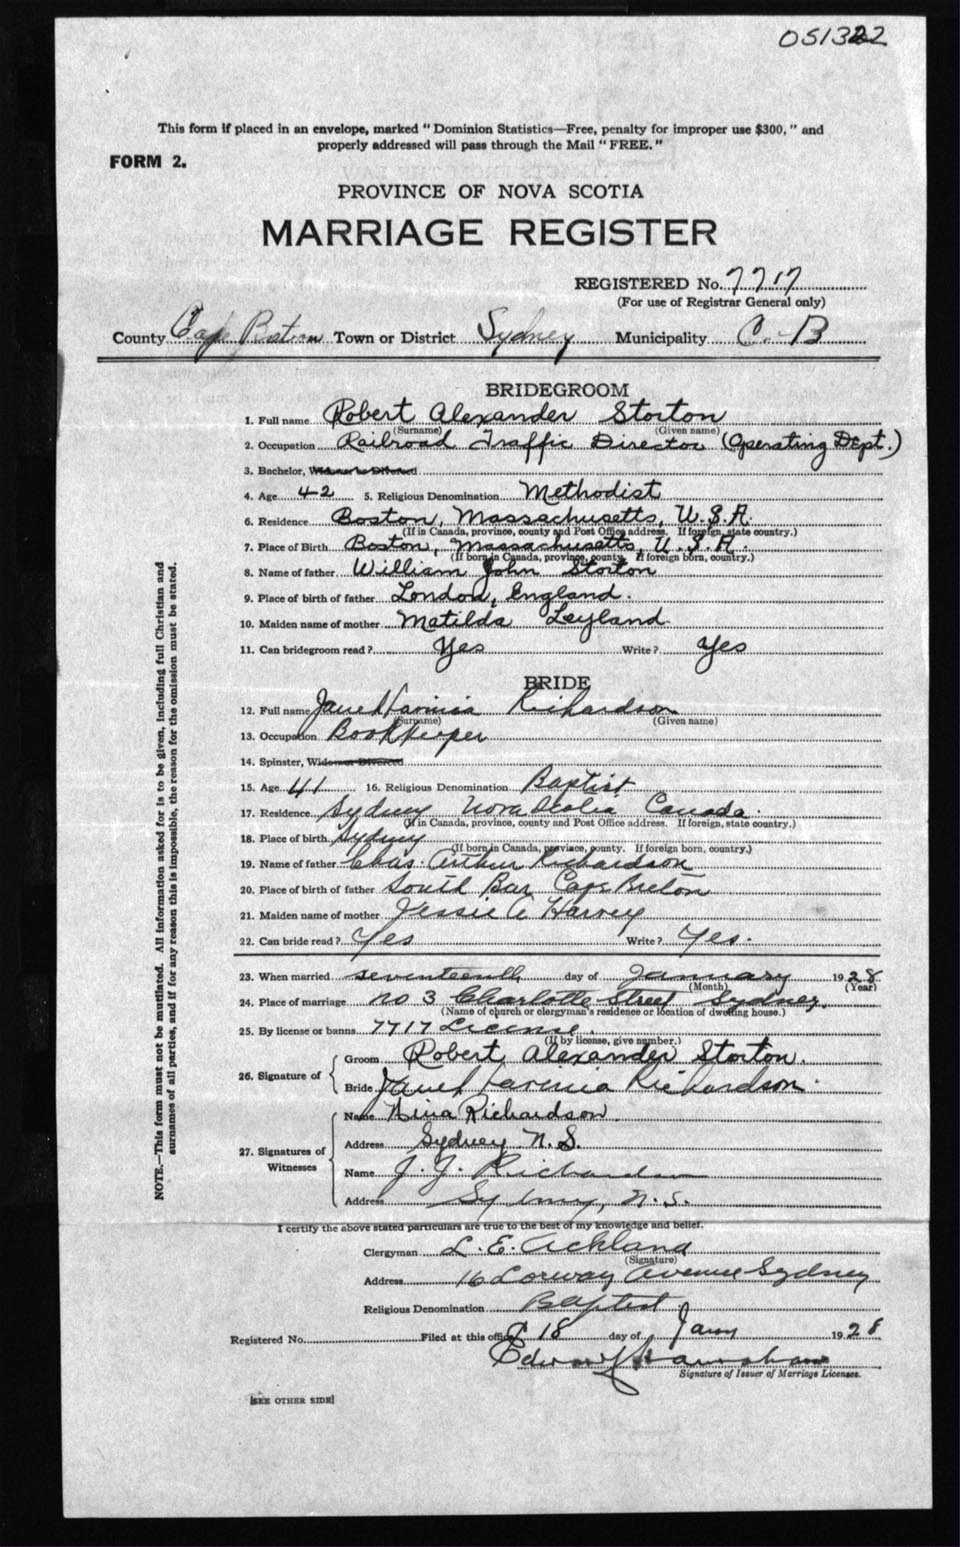 051322
This form if placed in an envelope, marked "Dominion Statistics—Free, penalty for improper use $300," and
properly addressed will pass through the Mail "FREE."
FORM 2.
PROVINCE OF NOVA SCOTIA
MARRIAGE REGISTER
REGISTERED No. 7717
(For use of Registrar General only)
County Cape Breton Town or District Sydney Municipality C. B
BRIDEGROOM
1. Full name Robert Alexander Storton
(Surname) (Given name)
2. Occupation Railroad Traffic Director (Operating Dept.)
3. Bachelor, Widower or Divorced
4. Age 42 5. Religious Denomination Methodist
6. Residence Boston, Massachusetts, U.S.A.
(If in Canada, province, county and Post Office address. If foreign, state country.)
7. Place of Birth Boston, Massachusetts, U.S.A.
(If born in Canada, province, county. If foreign born, country.)
8. Name of father William John Storton
9. Place of birth of father London, England.
10. Maiden name of mother Matilda Leyland
11. Can bridegroom read? Yes Write? Yes
BRIDE
12. Full name Jane Lavinia Richardson
(Surname) (Given name)
13. Occupation Bookkeeper
14. Spinster, Widow or Divorced
15. Age 41 16. Religious Denomination Baptist
17. Residence Sydney Nova Scotia Canada.
(If in Canada, province, county and Post Office address. If foreign, state country.)
18. Place of birth Sydney
(If born in Canada, province, county. If foreign born, country.)
19. Name of father Chas. Arthur Richardson
20. Place of birth of father South Bar Cape Breton
21. Maiden name of mother Jessie A Harvey
22. Can bride read? Yes Write? Yes.
23. When married seventeenth day of January 1928
(Month) (Year)
24. Place of marriage no 3 Charlotte Street Sydney.
(Name of church or clergyman's residence or location of dwelling house.)
25. By license or banns 7717 License.
(If by license, give number.)
26. Signature of
Groom Robert Alexander Storton.
Bride Jane Lavinia Richardson.
27. Signatures of Witnesses
Name Nina Richardson
Address Sydney N.S.
Name J. J. Richardson
Address Sydney, N.S.
I certify the above stated particulars are true to the best of my knowledge and belief.
Clergyman L. E. Ackland
(Signature)
Address 16 Lorway Avenue Sydney
Religious Denomination Baptist
Registered No. Filed at this office 18 day of Jany 1928
Signature of Issuer of Marriage Licenses.
[SEE OTHER SIDE]
NOTE.—This form must not be mutilated. All information asked for is to be given, including full Christian and
surnames of all parties, and if for any reason this is impossible, the reason for the omission must be stated.